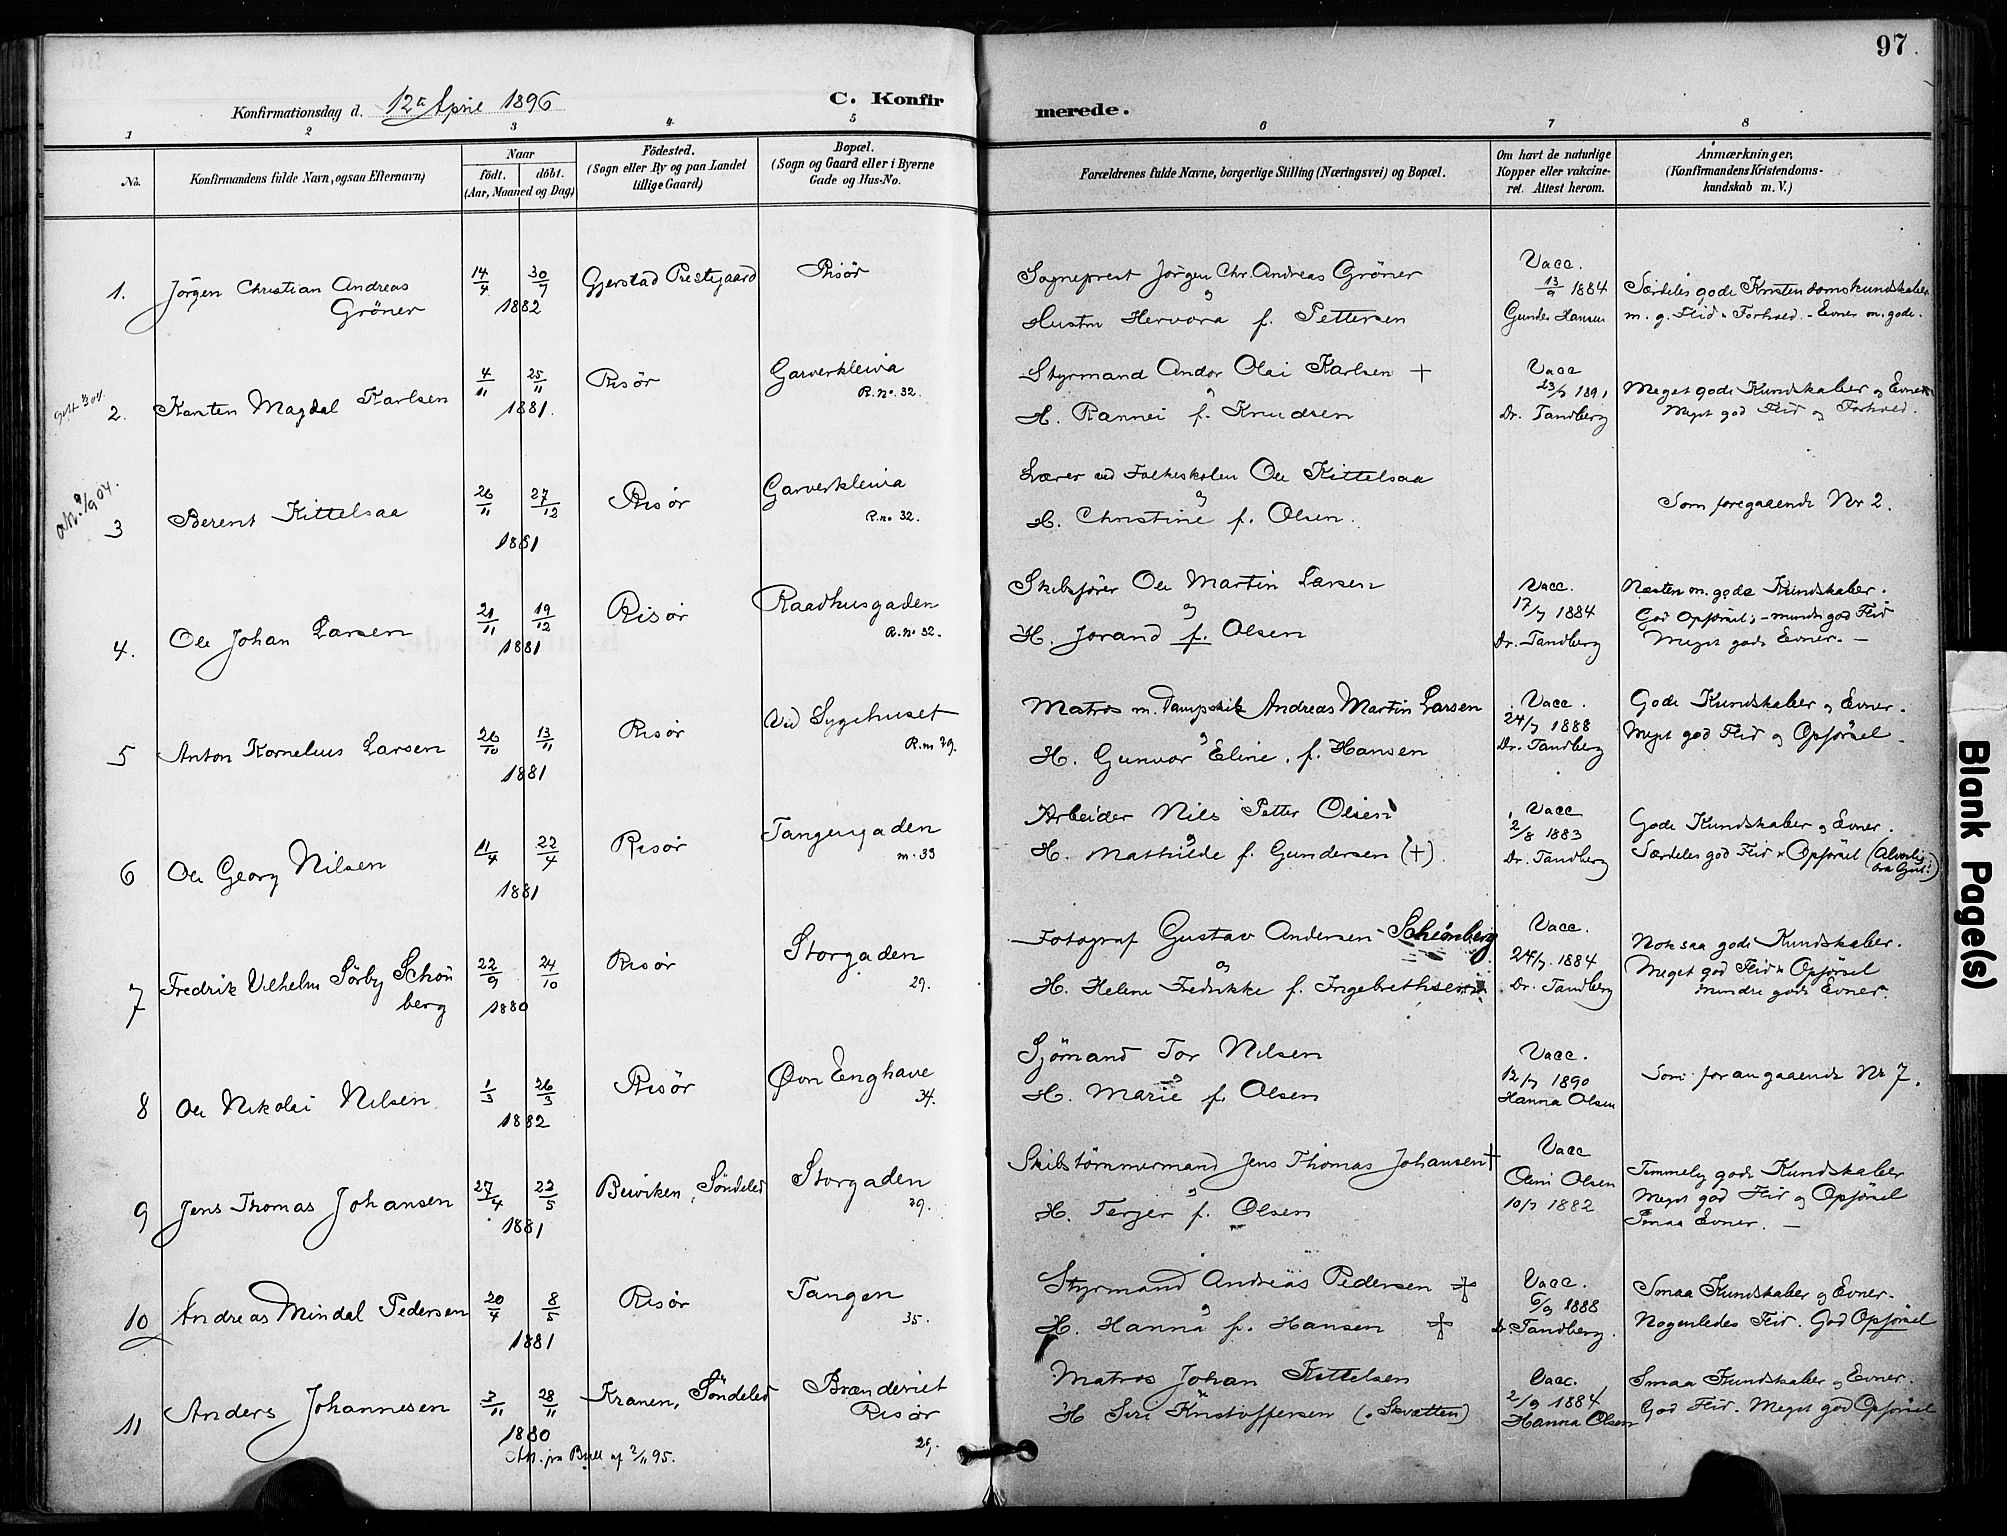 97
Konfirmationsdag d. 12te April 1896
C. Konfirmerede.
1 2 3 4 5 6 7 8
No.
Konfirmandens fulde Navn, ogsaa Efternavn)
Naar
födt. döbt.
(Aar, Maaned og Dag)
Födested.
(Sogn eller By og paa Landet
tillige Gaard)
Bopæl.
(Sogn og Gaard eller i Byerne
Gade og Hus-No.
Forældrenes fulde Navne, borgerlige Stilling (Næringsvei) og Bopæl.
Om havt de naturlige
Kopper eller vakcine-
ret. Attest herom.
Anmærkninger,
(Konfirmandens Kristendoms-
kundskab m. V.)
1. Jörgen Christian Andreas
Gröner
14/4 30/7
1882
Gjerstad Prestegaard
Risør
Sogneprest Jörgen Chr. Andreas Gröner
og
Hustru Hervora f. Pettersen
Vacc.
13/9 1884
Gunder Hansen
Særdeles gode Kristendomskundskaber
m. g. Flid & Forhold. - Evner m. gode.
2. Karsten Magdal Karlsen
4/11 25/11
1881.
Risør
Garverkleiva
R. No. 32.
Styrmand Andor Olai Karlsen +
og
H. Rannei f. Knudsen
Vacc
23/7 1891
Dr. Tandberg
Meget gode Kundskaber og Evner
Meget god Flid og Forhold.
3 Berent Kittelsaa
26/11 27/12
1881
Risør
Garverkleiva
R. no 32.
Lærer ved Folkeskolen Ole Kittelsaa
og
H. Christine f. Olsen.
Som foregaaende Nr 2.
4. Ole Johan Larsen
21/11 19/12
1881
Risør
Raadhusgaden
R. No 32.
Skibsfører Ole Martin Larsen
og
H. Jorand f. Olsen
Vacc.
17/7 1884
Dr. Tandberg
Næsten m. gode Kundskaber.
God Opførsel; - mindre god Flid
Meget gode Evner. -
5 Anton Kornelius Larsen
26/10 13/11
1881
Risør
Ved Sygehuset
R. m 29.
Matros m. Dampskib Andreas Martin Larsen
og
H. Gunvor Eline, f. Hansen
Vacc.
24/7 1888
Dr. Tandberg
Gode Kundskaber og Evner.
Meget god Flid og Opførsel.
6 Ole Georg Nilsen
11/4 22/4
1881
Risør
Tangengaden
m. 33
Arbeider Nils Petter Olsen
og
H. Mathilde f. Gundersen (+).
Vacc
2/8 1883
Dr. Tandberg
Gode Kundskaber og Evner.
Særdeles god Flid & Opførsel (Alvorlig
bra Gut!)
7 Fredrik Vilhelm Sörby Schön
berg
22/9 24/10
1880
Risør
Storgaden
29.
Fotograf Gustav Andersen - Schönberg
og
H. Helene Fredrikke f. Ingebrethsen
Vacc.
24/7. 1884
Dr. Tandberg
Noksaa gode Kundskaber.
Meget god Flid & Opførsel
Mindre gode Evner.
8 Ole Nikolai Nilsen
1/3 26/3
1882
Risør
Øvn Enghave
34.
Sjömand Tor Nilsen
og
H. Marie f. Olsen
Vacc.
12/7 1890
Hanna Olsen
Som forangaaende Nr 7.
9 Jens Thomas Johansen
27/4 22/5
1881
Beviken, Söndeled
Storgaden
29.
Skibstömmermand Jens Thomas Johansen +
og
H. Terjer f. Olsen
Vacc
Oleni Olsen
10/7 1882
Temmelig gode Kundskaber
Meget god Flid og Opførsel
Smaa Evner. -
10 Andreas Mindal Pedersen
20/4 8/5
1881
Risør
Tangen
35.
Styrmand Andreas Pedersen +
og
H. Hanna f. Hansen +
Vacc.
6/9 1888
Dr. Tandberg.
Smaa Kundskaber og Evner.
Nogenledes Flid. God Opførsel
11 Anders Johannesen
7/11 28/11
1880
Att. fra Bull af 2/11 95.
Kranen, Söndeled
Brænderiet
Risør
29.
Matros Johan Kittelsen
H Siri Kristoffersen (. Skvetten)
Vacc.
2/9 1884
Hanna Olsen
Smaa Kundskaber og Evner.
God Flid. Meget god Opførsel
Blank Page(s)